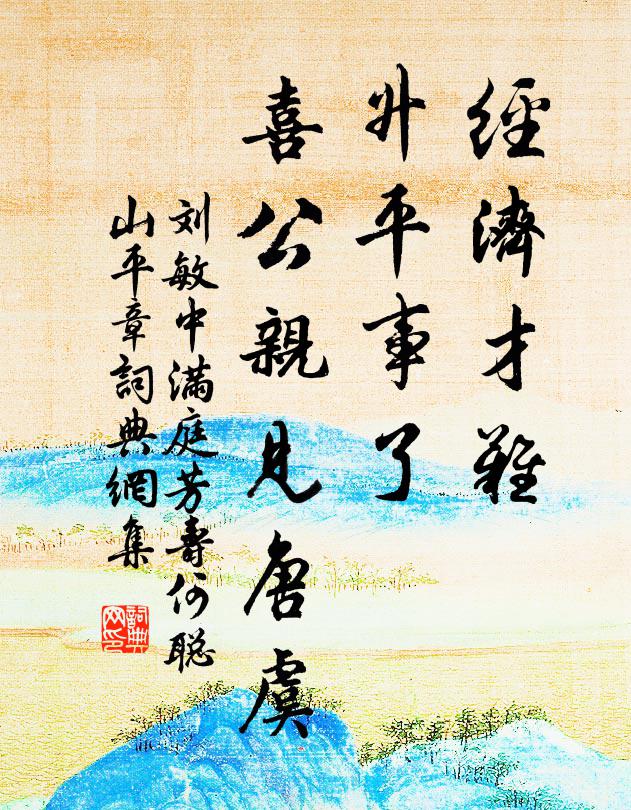 經濟才難
升平事了
喜公親見唐虞
刘敏中满庭芳壽何聡
山平章詞典網集
詞典网印